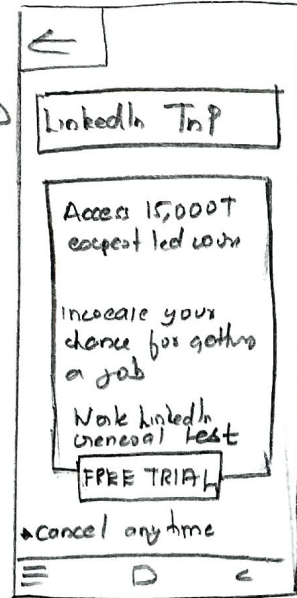 LinkedIn TnP
Access 15,000+
expest led
Increase your
chance for getting
a job
LinkedIn
General test
FREE TRIAL
cancel any time